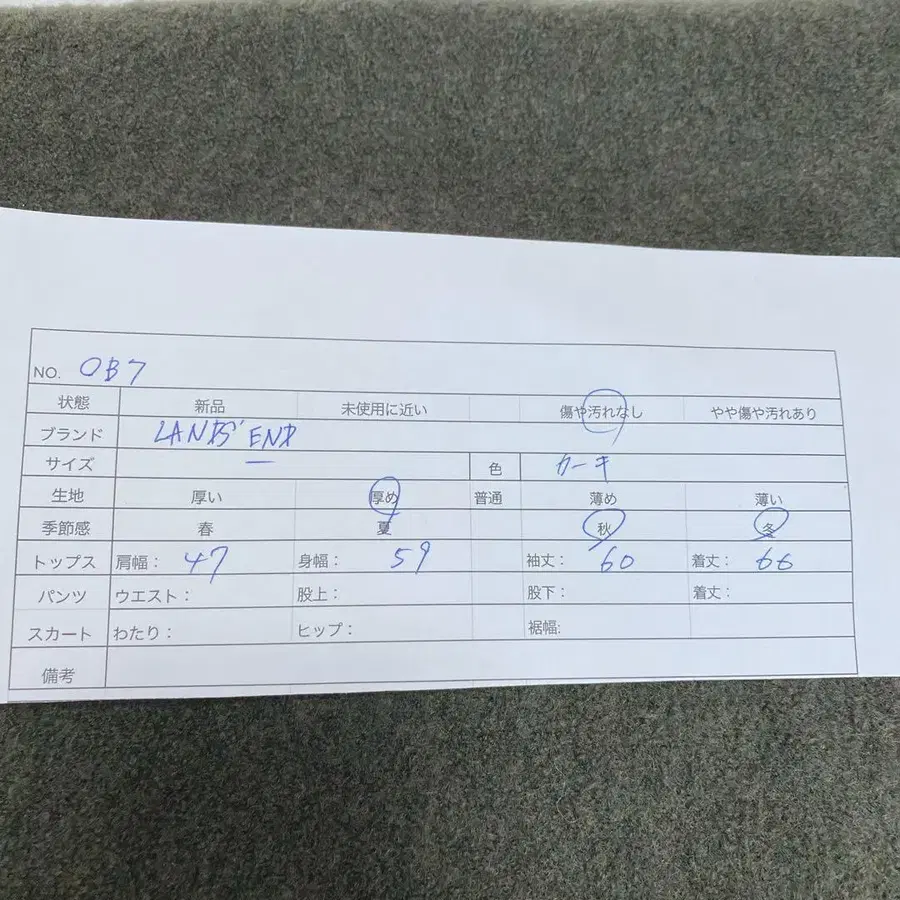 NO. OB7
状態 新品 未使用に近い 傷や汚れなし やや傷や汚れあり
ブランド LANDS' END
サイズ 色 カーキ
生地 厚い 厚め 普通 薄め 薄い
季節感 春 夏 秋 冬
トップス 肩幅: 47 身幅: 59 袖丈: 60 着丈: 66
パンツ ウエスト: 股上: 股下: 着丈:
スカート わたり: ヒップ: 裾幅:
備考